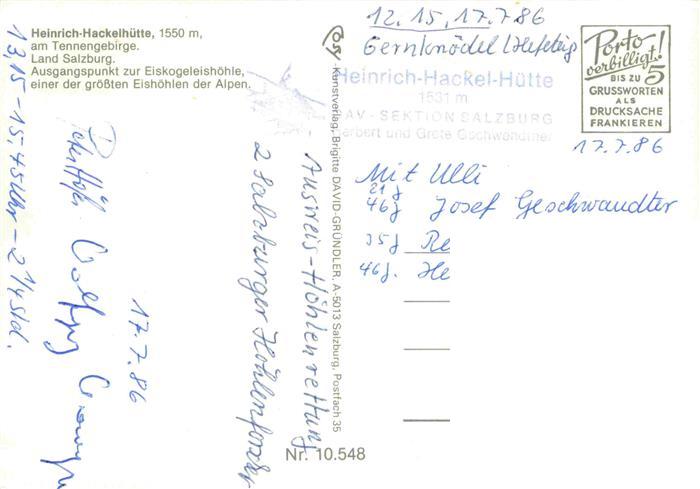 Heinrich-Hackelhütte, 1550 m,
am Tennengebirge.
Land Salzburg.
Ausgangspunkt zur Eiskogeleishöhle,
einer der größten Eishöhlen der Alpen.
13,15-15,45 Uhr - 2 1/4 Std.
17.7.86
2 Salzburger Höhlenforscher
Ausweis-Höhlenrettung
Kunstverlag, Brigitte DAVID-GRÜNDLER, A-5013 Salzburg, Postfach 35
Nr. 10.548
12.15, 17.7.86
Heinrich-Hackel-Hütte
1531 m
ÖAV - SEKTION SALZBURG
Herbert und Grete Gschwandtner
Porto
verbilligt!
BIS ZU 5
GRUSSWORTEN
ALS
DRUCKSACHE
FRANKIEREN
17.7.86
Mit Ulli
21 J
46 J Josef Geschwandter
35 J Re
46 J. He